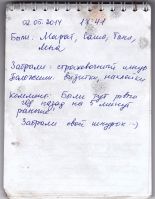 02.05.2014 18:41
Были: Марат, Саша, Таня,
Лена
Забрали: страховочный шнур
Положили: визитки, наклейки
Коммент: Были тут ровно
год назад на 5 минут
раньше!
Забрали свой шнурок :-)